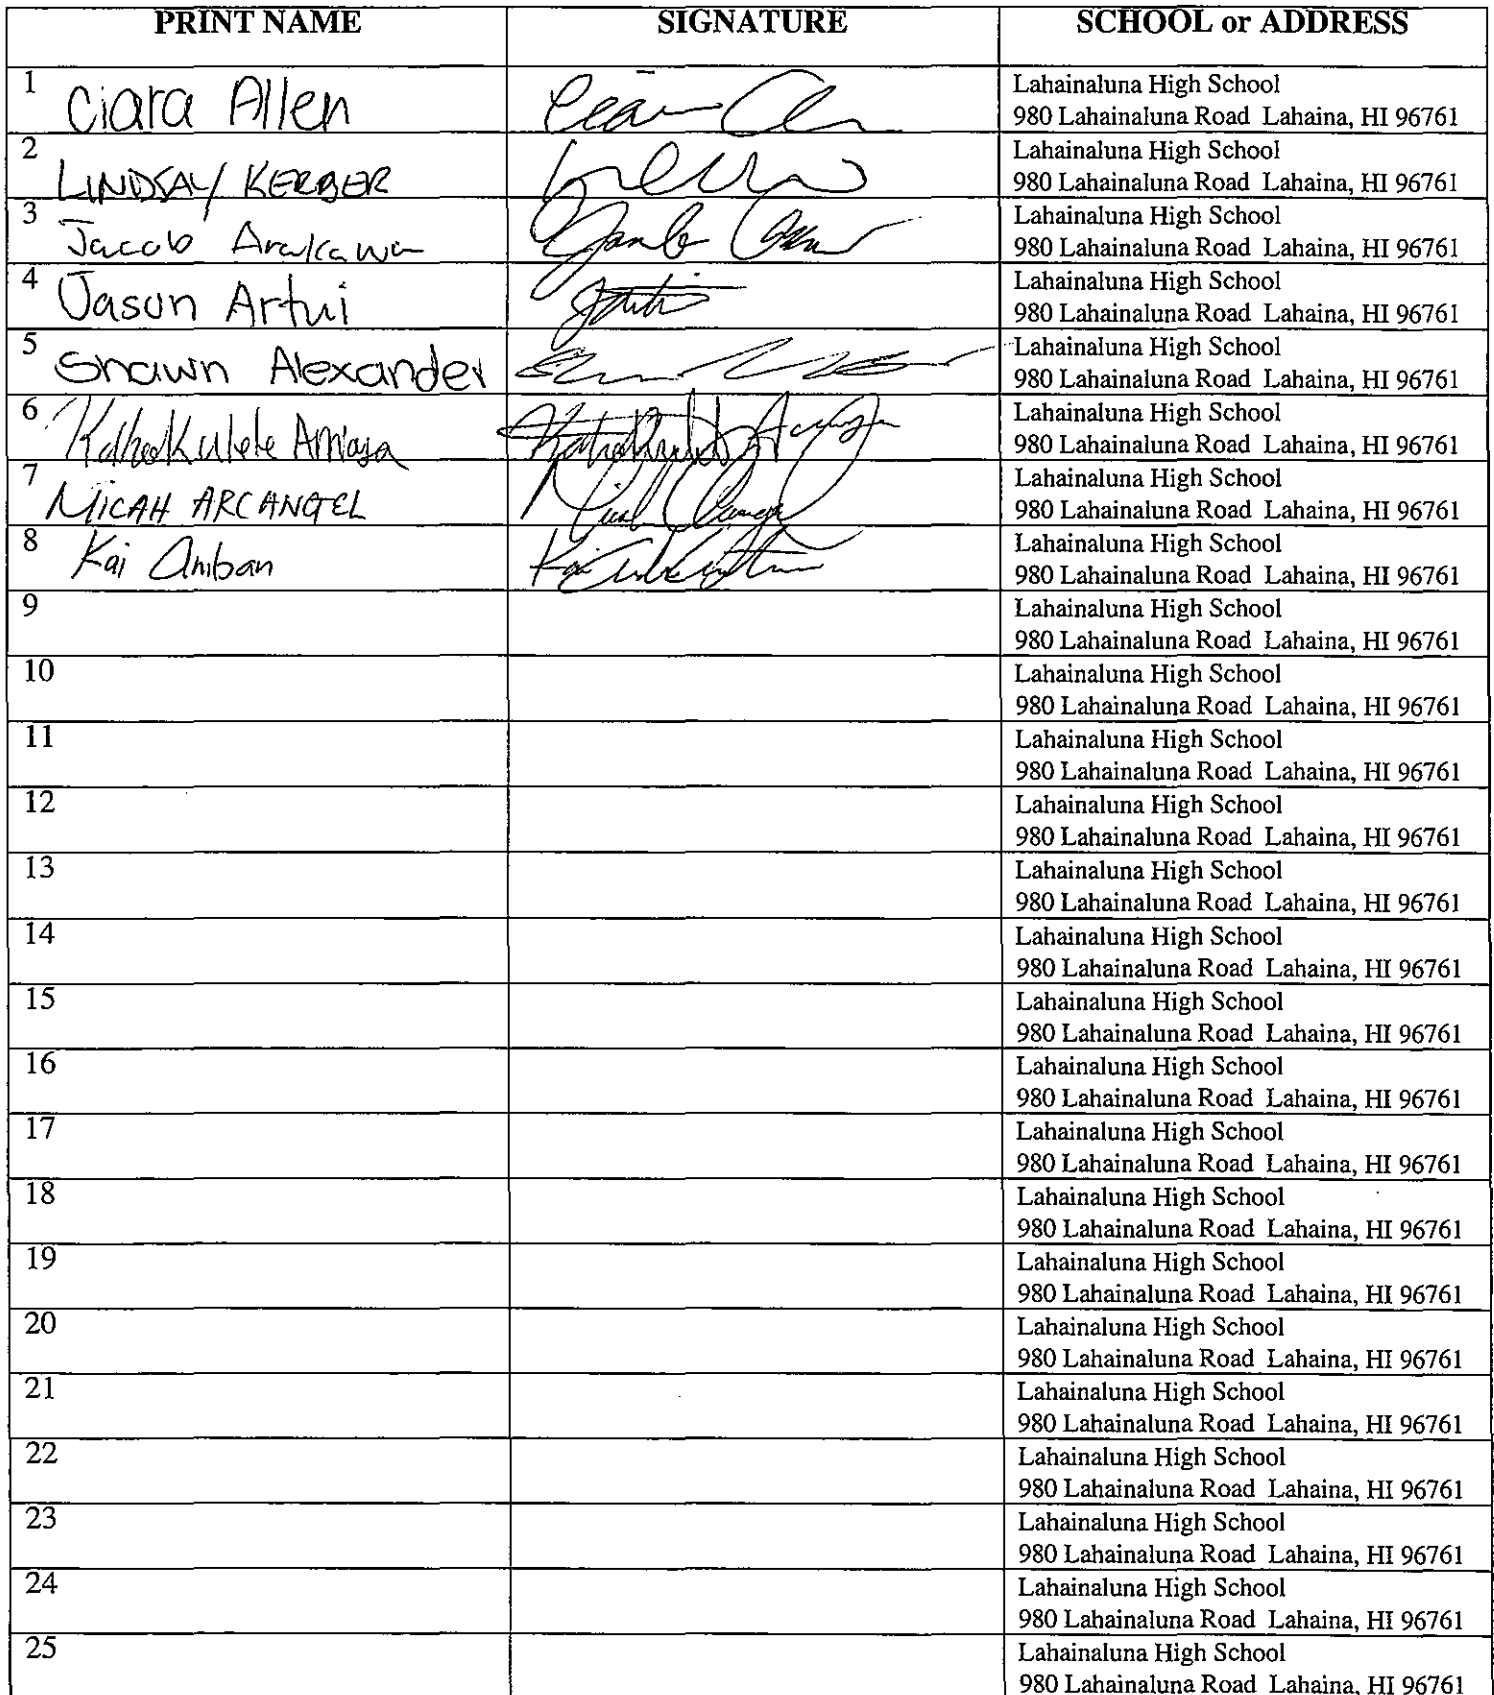 PRINT NAME SIGNATURE SCHOOL or ADDRESS
1 Ciara Allen Lahainaluna High School
980 Lahainaluna Road Lahaina, HI 96761
2 LINDSAY KERBER Lahainaluna High School
980 Lahainaluna Road Lahaina, HI 96761
3 Jacob Arakawa Lahainaluna High School
980 Lahainaluna Road Lahaina, HI 96761
4 Jason Artui Lahainaluna High School
980 Lahainaluna Road Lahaina, HI 96761
5 Shawn Alexander Lahainaluna High School
980 Lahainaluna Road Lahaina, HI 96761
6 Lahainaluna High School
980 Lahainaluna Road Lahaina, HI 96761
7 MICAH ARCANGEL Lahainaluna High School
980 Lahainaluna Road Lahaina, HI 96761
8 Kai Aniban Lahainaluna High School
980 Lahainaluna Road Lahaina, HI 96761
9 Lahainaluna High School
980 Lahainaluna Road Lahaina, HI 96761
10 Lahainaluna High School
980 Lahainaluna Road Lahaina, HI 96761
11 Lahainaluna High School
980 Lahainaluna Road Lahaina, HI 96761
12 Lahainaluna High School
980 Lahainaluna Road Lahaina, HI 96761
13 Lahainaluna High School
980 Lahainaluna Road Lahaina, HI 96761
14 Lahainaluna High School
980 Lahainaluna Road Lahaina, HI 96761
15 Lahainaluna High School
980 Lahainaluna Road Lahaina, HI 96761
16 Lahainaluna High School
980 Lahainaluna Road Lahaina, HI 96761
17 Lahainaluna High School
980 Lahainaluna Road Lahaina, HI 96761
18 Lahainaluna High School
980 Lahainaluna Road Lahaina, HI 96761
19 Lahainaluna High School
980 Lahainaluna Road Lahaina, HI 96761
20 Lahainaluna High School
980 Lahainaluna Road Lahaina, HI 96761
21 Lahainaluna High School
980 Lahainaluna Road Lahaina, HI 96761
22 Lahainaluna High School
980 Lahainaluna Road Lahaina, HI 96761
23 Lahainaluna High School
980 Lahainaluna Road Lahaina, HI 96761
24 Lahainaluna High School
980 Lahainaluna Road Lahaina, HI 96761
25 Lahainaluna High School
980 Lahainaluna Road Lahaina, HI 96761